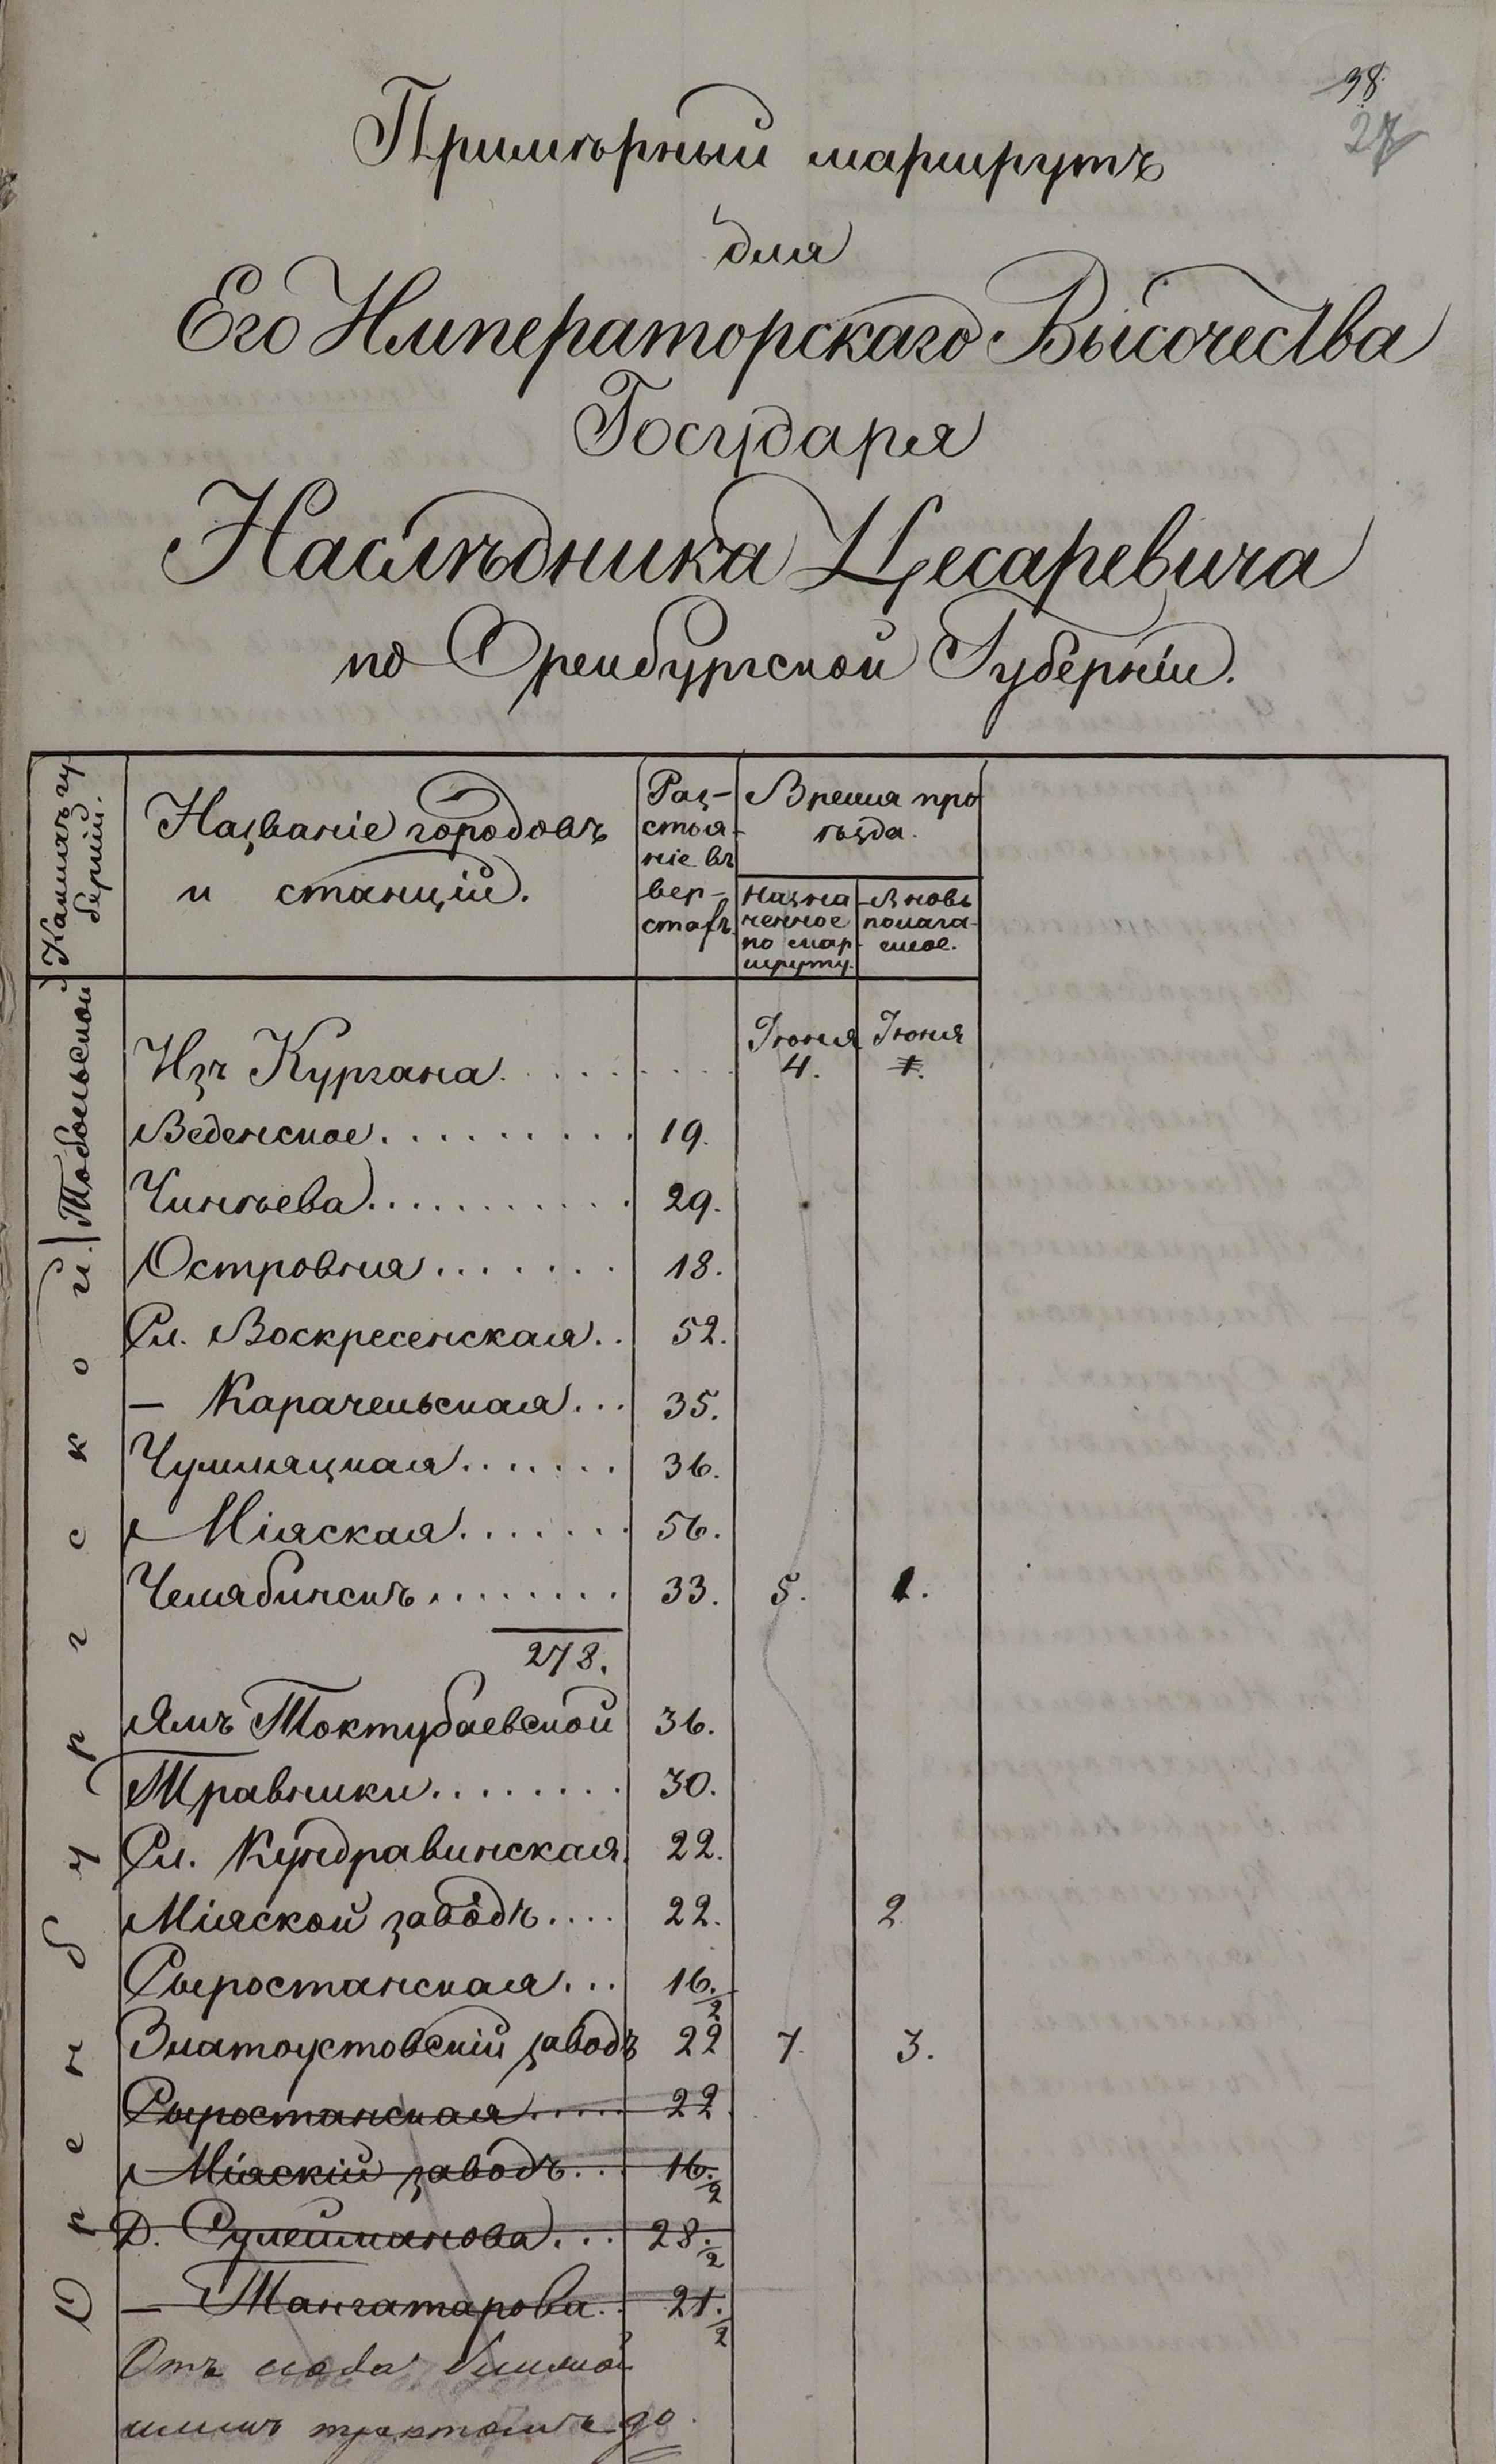 38.
27
Примѣрный маршрутъ
для
Его Императорскаго Высочества
Государя
Наслѣдника Цесаревича
по Оренбургской Губерніи.
Какихъ губерній.
Названіе городовъ и станцій.
Раз-
стоя-
ніе въ
вер-
стахъ
Время про
ѣзда.
Назна
ченное
по мар-
шруту.
Вновь
полага-
емое.
Тобольской
Оренбургской.
Изъ Кургана. . . . . . . . . Іюня 4. Іюня 1.
Веденское. . . . . . . . . . 19.
Чинѣева. . . . . . . . . . . 29.
Островня. . . . . . . 18.
Сл. Воскресенская. . 52.
— Карачельская. . . 35.
Чумляцкая. . . . . . . 36.
Міяская. . . . . . . 56.
Челябинскъ. . . . . . . . 33. 5. 1.
278.
Ямъ Токтубаевской 36.
Травники. . . . . . . . 30.
Сл. Кундравинская. 22.
Міяской заводъ. . . . 22. 2
Сыростанская. . . 16.½
Златоустовскій заводъ 22 7. 3.
Сыростанская. . . . . 22
Міяскій заводъ. . . 16.½
Д. Сулейманова. . . 28.½
— Тангатарова. . 21.½
Отъ
трактомъ до